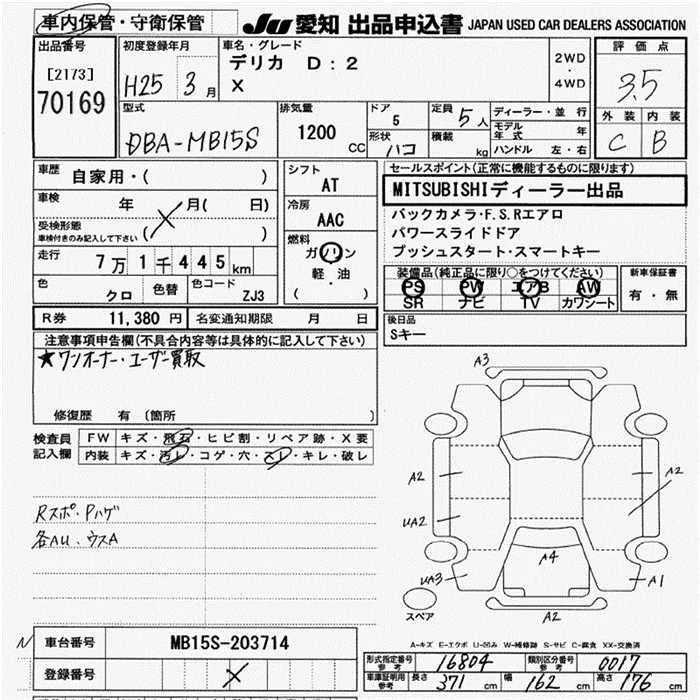 車内保管・守衛保管
JU 愛知 出品申込書 JAPAN USED CAR DEALERS ASSOCIATION
出品番号
[2173]
70169
初度登録年月
H25 3 月
車名・グレード
デリカ D:2
X
2WD
・
4WD
評価点
3.5
外装 内装
C B
型式
DBA-MB15S
排気量
1200
CC
ドア
5
定員
5 人
形状
ハコ
積載
kg
ディーラー・並行
モデル年式 年
ハンドル 左・右
車歴
自家用・( )
車検
年 月( 日)
受検形態
車検付きのみ記入して下さい
( )
走行
7万1千445km
色
クロ
色替
色コード
ZJ3
シフト
AT
冷房
AAC
燃料
ガソリン
軽・油
( )
セールスポイント(正常に機能するものに限ります)
MITSUBISHIディーラー出品
バックカメラ・F.S.Rエアロ
パワースライドドア
プッシュスタート・スマートキー
装備品(純正品に限り○をつけてください)
PS PW エアB AW
SR ナビ TV カワシート
新車保証書
有・無
R券 11,380 円
名変通知期限 月 日
後日品
Sキー
注意事項申告欄(不具合内容等は具体的に記入して下さい)
★ワンオーナー・ユーザー買取
修復歴 有 〔箇所 〕
検査員記入欄
FW キズ・飛石・ヒビ割・リペア跡・X要
内装 キズ・汚レ・コゲ・穴・スレ・キレ・破レ
Rスポ・Pハゲ
各AU、ウスA
A3
A2
A2
UA2
A4
UA3
A1
スペア
A2
A-キズ E-エクボ U-凹み W-補修跡 S-サビ C-腐食 XX-交換済
N
車台番号
MB15S-203714
登録番号
X
形式指定番号 参考
16804
類別区分番号 参考
0017
車庫証明用 参考
長さ 371 cm
幅 162 cm
高さ 176 cm